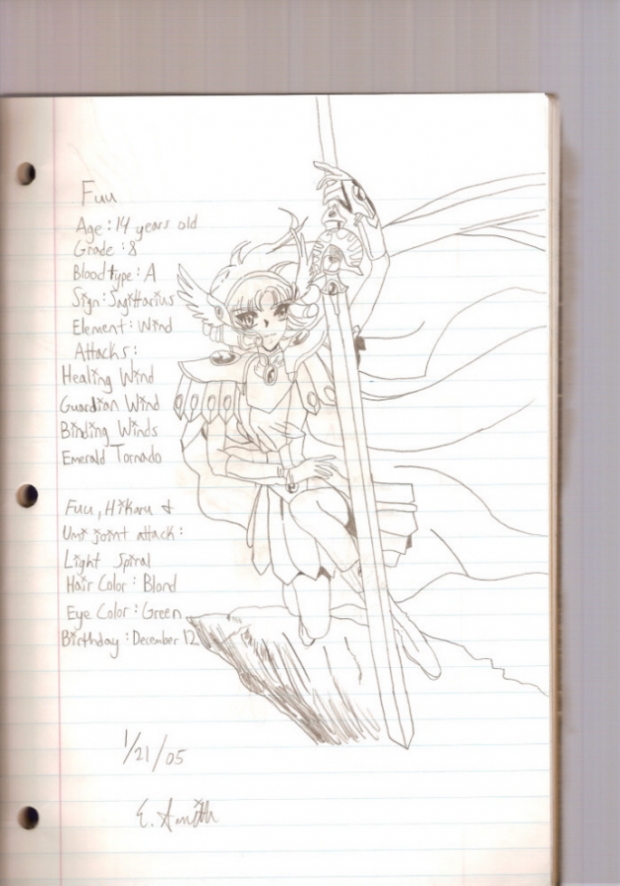 Fuu
Age: 14 years old
Grade: 8
Blood type: A
Sign: Sagittarius
Element: Wind
Attacks:
Healing Wind
Guardian Wind
Binding Winds
Emerald Tornado
Fuu, Hikaru &
Umi joint attack:
Light Spiral
Hair Color: Blond
Eye Color: Green
Birthday: December 12
1/21/05
E. Smith